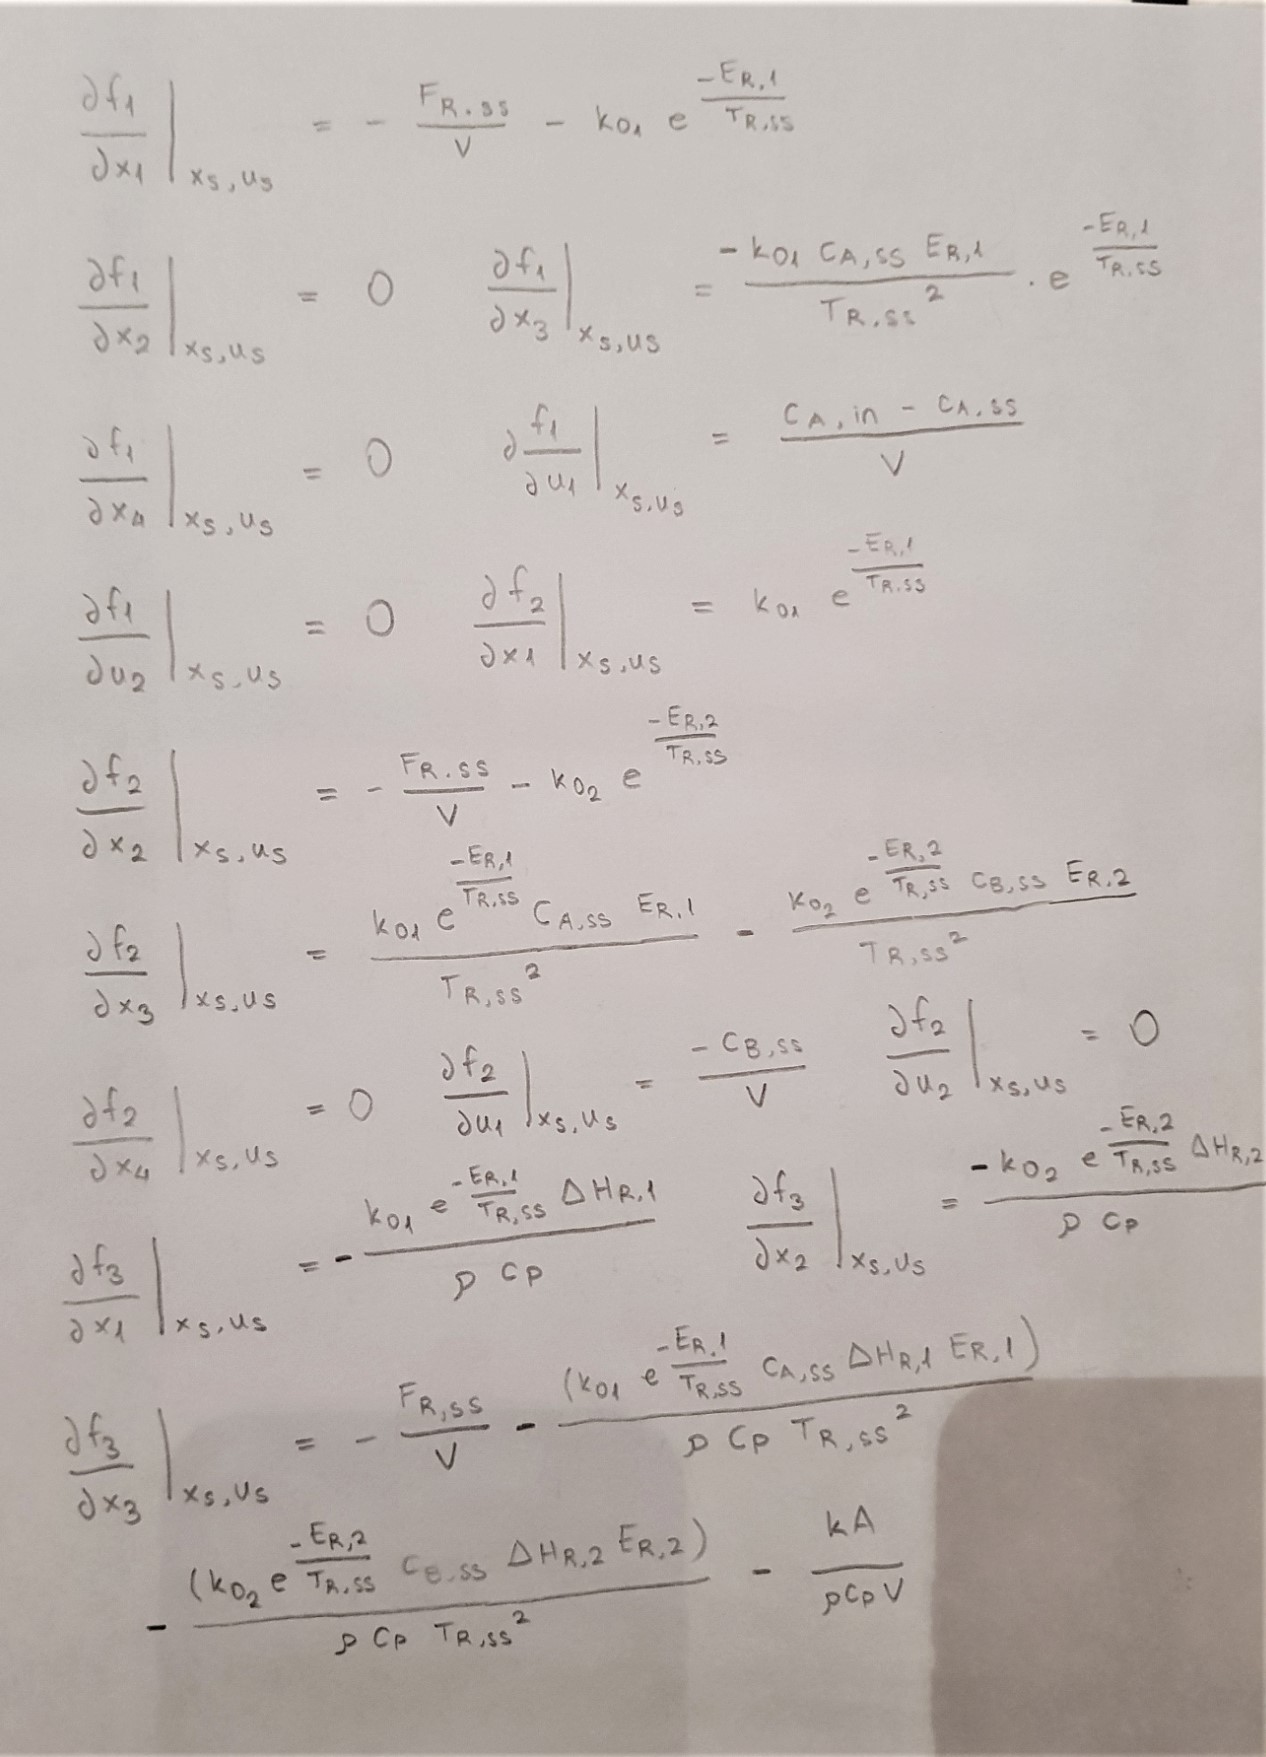 ∂f1/∂x1 |xs,us = - FR.ss/V - k01 e^(-ER,1/TR,ss)
∂f1/∂x2 |xs,us = 0 ∂f1/∂x3 |xs,us = -k01 CA,ss ER,1/TR,ss² · e^(-ER,1/TR,ss)
∂f1/∂x4 |xs,us = 0 ∂f1/∂u1 |xs,us = CA,in - CA,ss/V
∂f1/∂u2 |xs,us = 0 ∂f2/∂x1 |xs,us = k01 e^(-ER,1/TR.ss)
∂f2/∂x2 |xs,us = - FR.ss/V - k02 e^(-ER,2/TR,ss)
∂f2/∂x3 |xs,us = k01 e^(-ER,1/TR,ss) CA,ss ER,1/TR,ss² - k02 e^(-ER,2/TR,ss) CB,ss ER,2/TR,ss²
∂f2/∂x4 |xs,us = 0 ∂f2/∂u1 |xs,us = -CB,ss/V ∂f2/∂u2 |xs,us = 0
∂f3/∂x1 |xs,us = - k01 e^(-ER,1/TR,ss) ΔHR,1/ρ Cp ∂f3/∂x2 |xs,us = -k02 e^(-ER,2/TR,ss) ΔHR,2/ρ Cp
∂f3/∂x3 |xs,us = - FR,ss/V - (k01 e^(-ER,1/TR,ss) CA,ss ΔHR,1 ER,1)/ρ Cp TR,ss²
- (k02 e^(-ER,2/TR,ss) CB,ss ΔHR,2 ER,2)/ρ Cp TR,ss² - kA/ρCpV